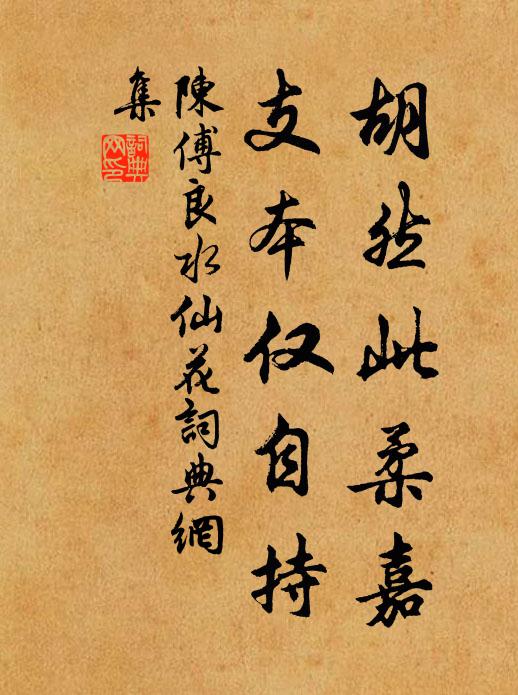 胡然此柔嘉
支本仅自持
陳傅良水仙花詞典網
集
詞典
网印